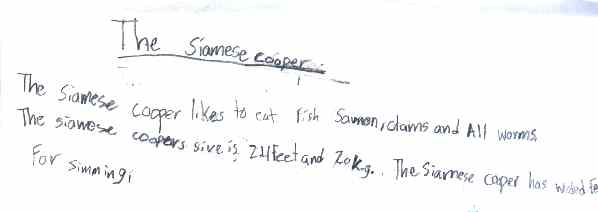 The Siamese cooper
The Siamese cooper likes to eat fish Samon, clams and All worms
The siamese coopers sive is 24feet and 20kg. The Siamese coper has
For simming